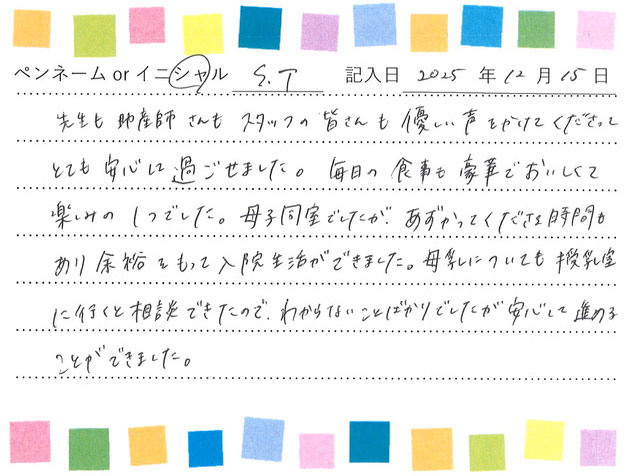 ペンネーム or イニシャル S.T 記入日 2025 年 12 月 15 日
先生も助産師さんもスタッフの皆さんも優しい声をかけてくださって
とても安心して過ごせました。毎日の食事も豪華でおいしくて
楽しみの1つでした。母子同室でしたが、あずかってくださる時間も
あり余裕をもって入院生活ができました。母乳についても授乳室
に行くと相談できたので、わからないことばかりでしたが安心して進める
ことができました。